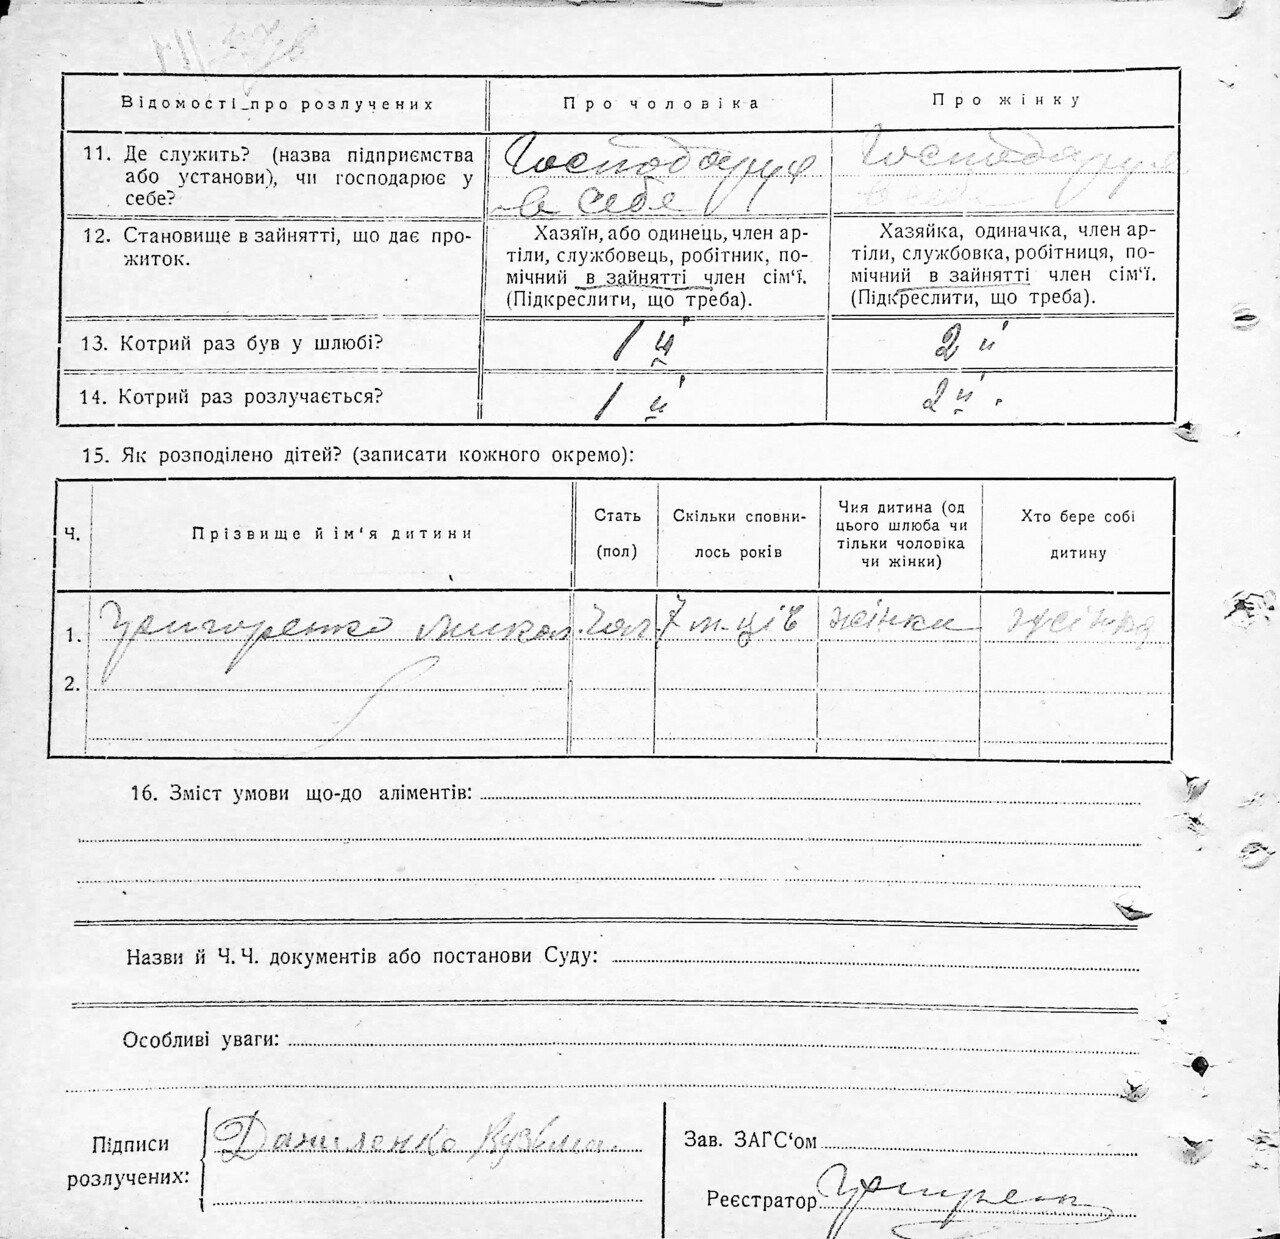 Відомості про розлучених
Про чоловіка
Про жінку
11. Де служить? (назва підприємства
або установи), чи господарює у
себе?
Господарує
в себе
Господарує
в себе
12. Становище в зайнятті, що дає про-
житок.
Хазяїн, або одинець, член ар-
тіли, службовець, робітник, по-
мічний в зайнятті член сім‘ї.
(Підкреслити, що треба).
Хазяйка, одиначка, член ар-
тіли, службовка, робітниця, по-
мічний в зайнятті член сім‘ї.
(Підкреслити, що треба).
13. Котрий раз був у шлюбі?
1й
2й
14. Котрий раз розлучається?
1й
2й.
15. Як розподілено дітей? (записати кожного окремо):
Ч.
Прізвище й ім‘я дитини
Стать
(пол)
Скільки сповни-
лось років
Чия дитина (од
цього шлюба чи
тільки чоловіка
чи жінки)
Хто бере собі
дитину
1. Григоренко Микол. Чол 7 м-ців жінки жінка
2.
16. Зміст умови що-до аліментів:
Назви й Ч. Ч. документів або постанови Суду:
Особливі уваги:
Підписи
розлучених:
Даниленко Кузьма.
Зав. ЗАГС‘ом
Реєстратор